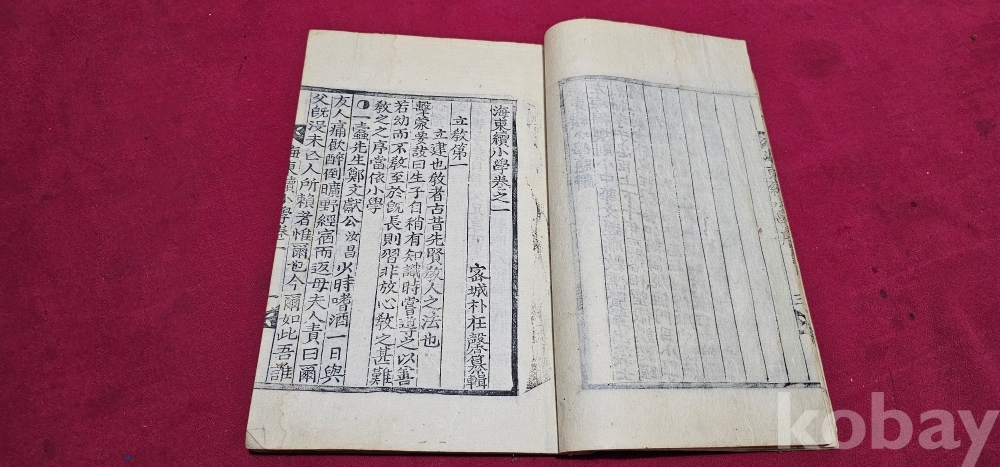 海東續小學卷之一
密城朴在馨纂輯
立教第一
立建也教者古昔先賢教人之法也
擊蒙要訣曰生子自稍有知識時當導之以善
若幼而不教至於旣長則習非放心教之甚難
教之之序當依小學
一蠹先生鄭文獻公汝昌少時嗜酒一日與
友人痛飮醉倒曠野經宿而返母夫人責曰爾
父旣沒未亡人所賴者惟爾也今爾如此吾誰
海東續小學卷一
一
kobay